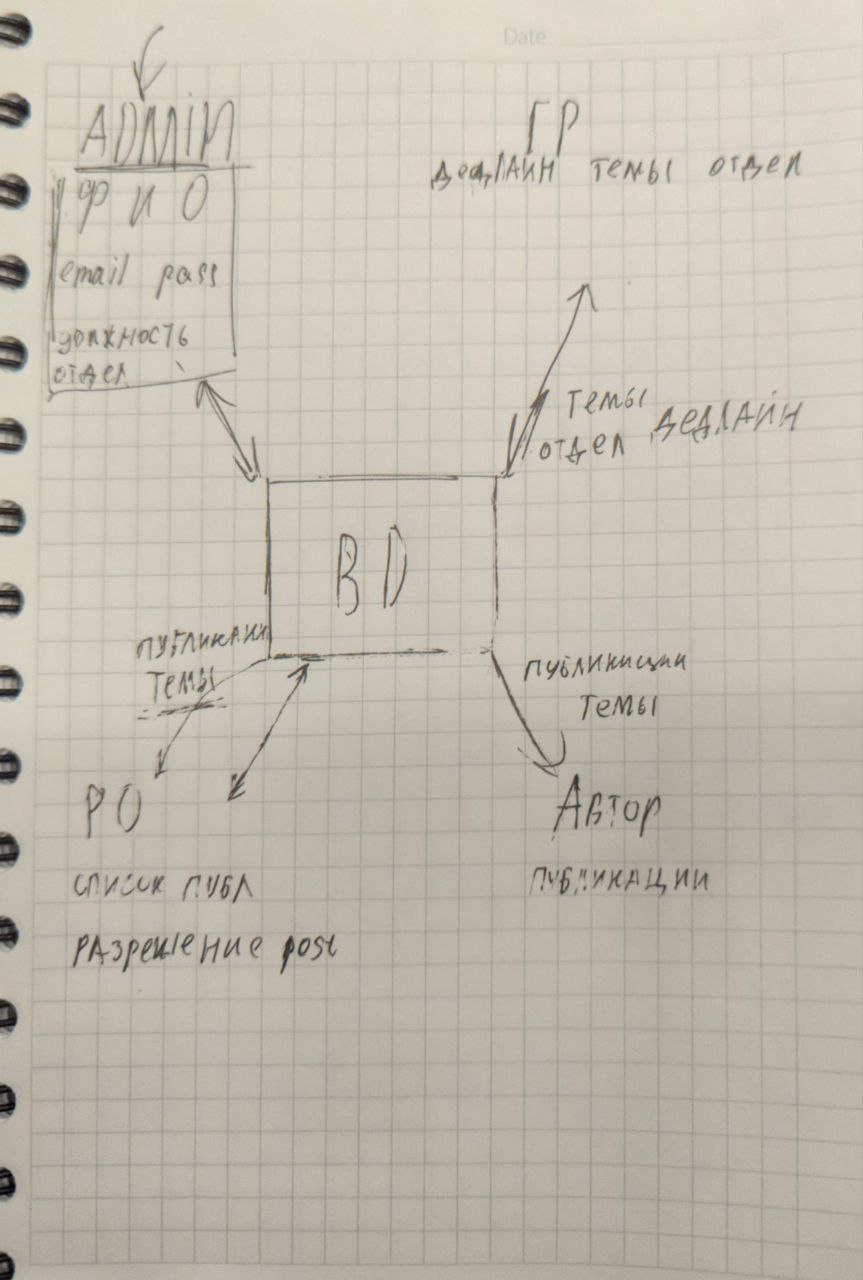 Date
ADMIN
ФИО
email pass
должность
отдел
ГР
дедлайн темы отдел
темы
отдел дедлайн
BD
темы
публикиции
темы
РО
список публ
разрешение post
Автор
публикации